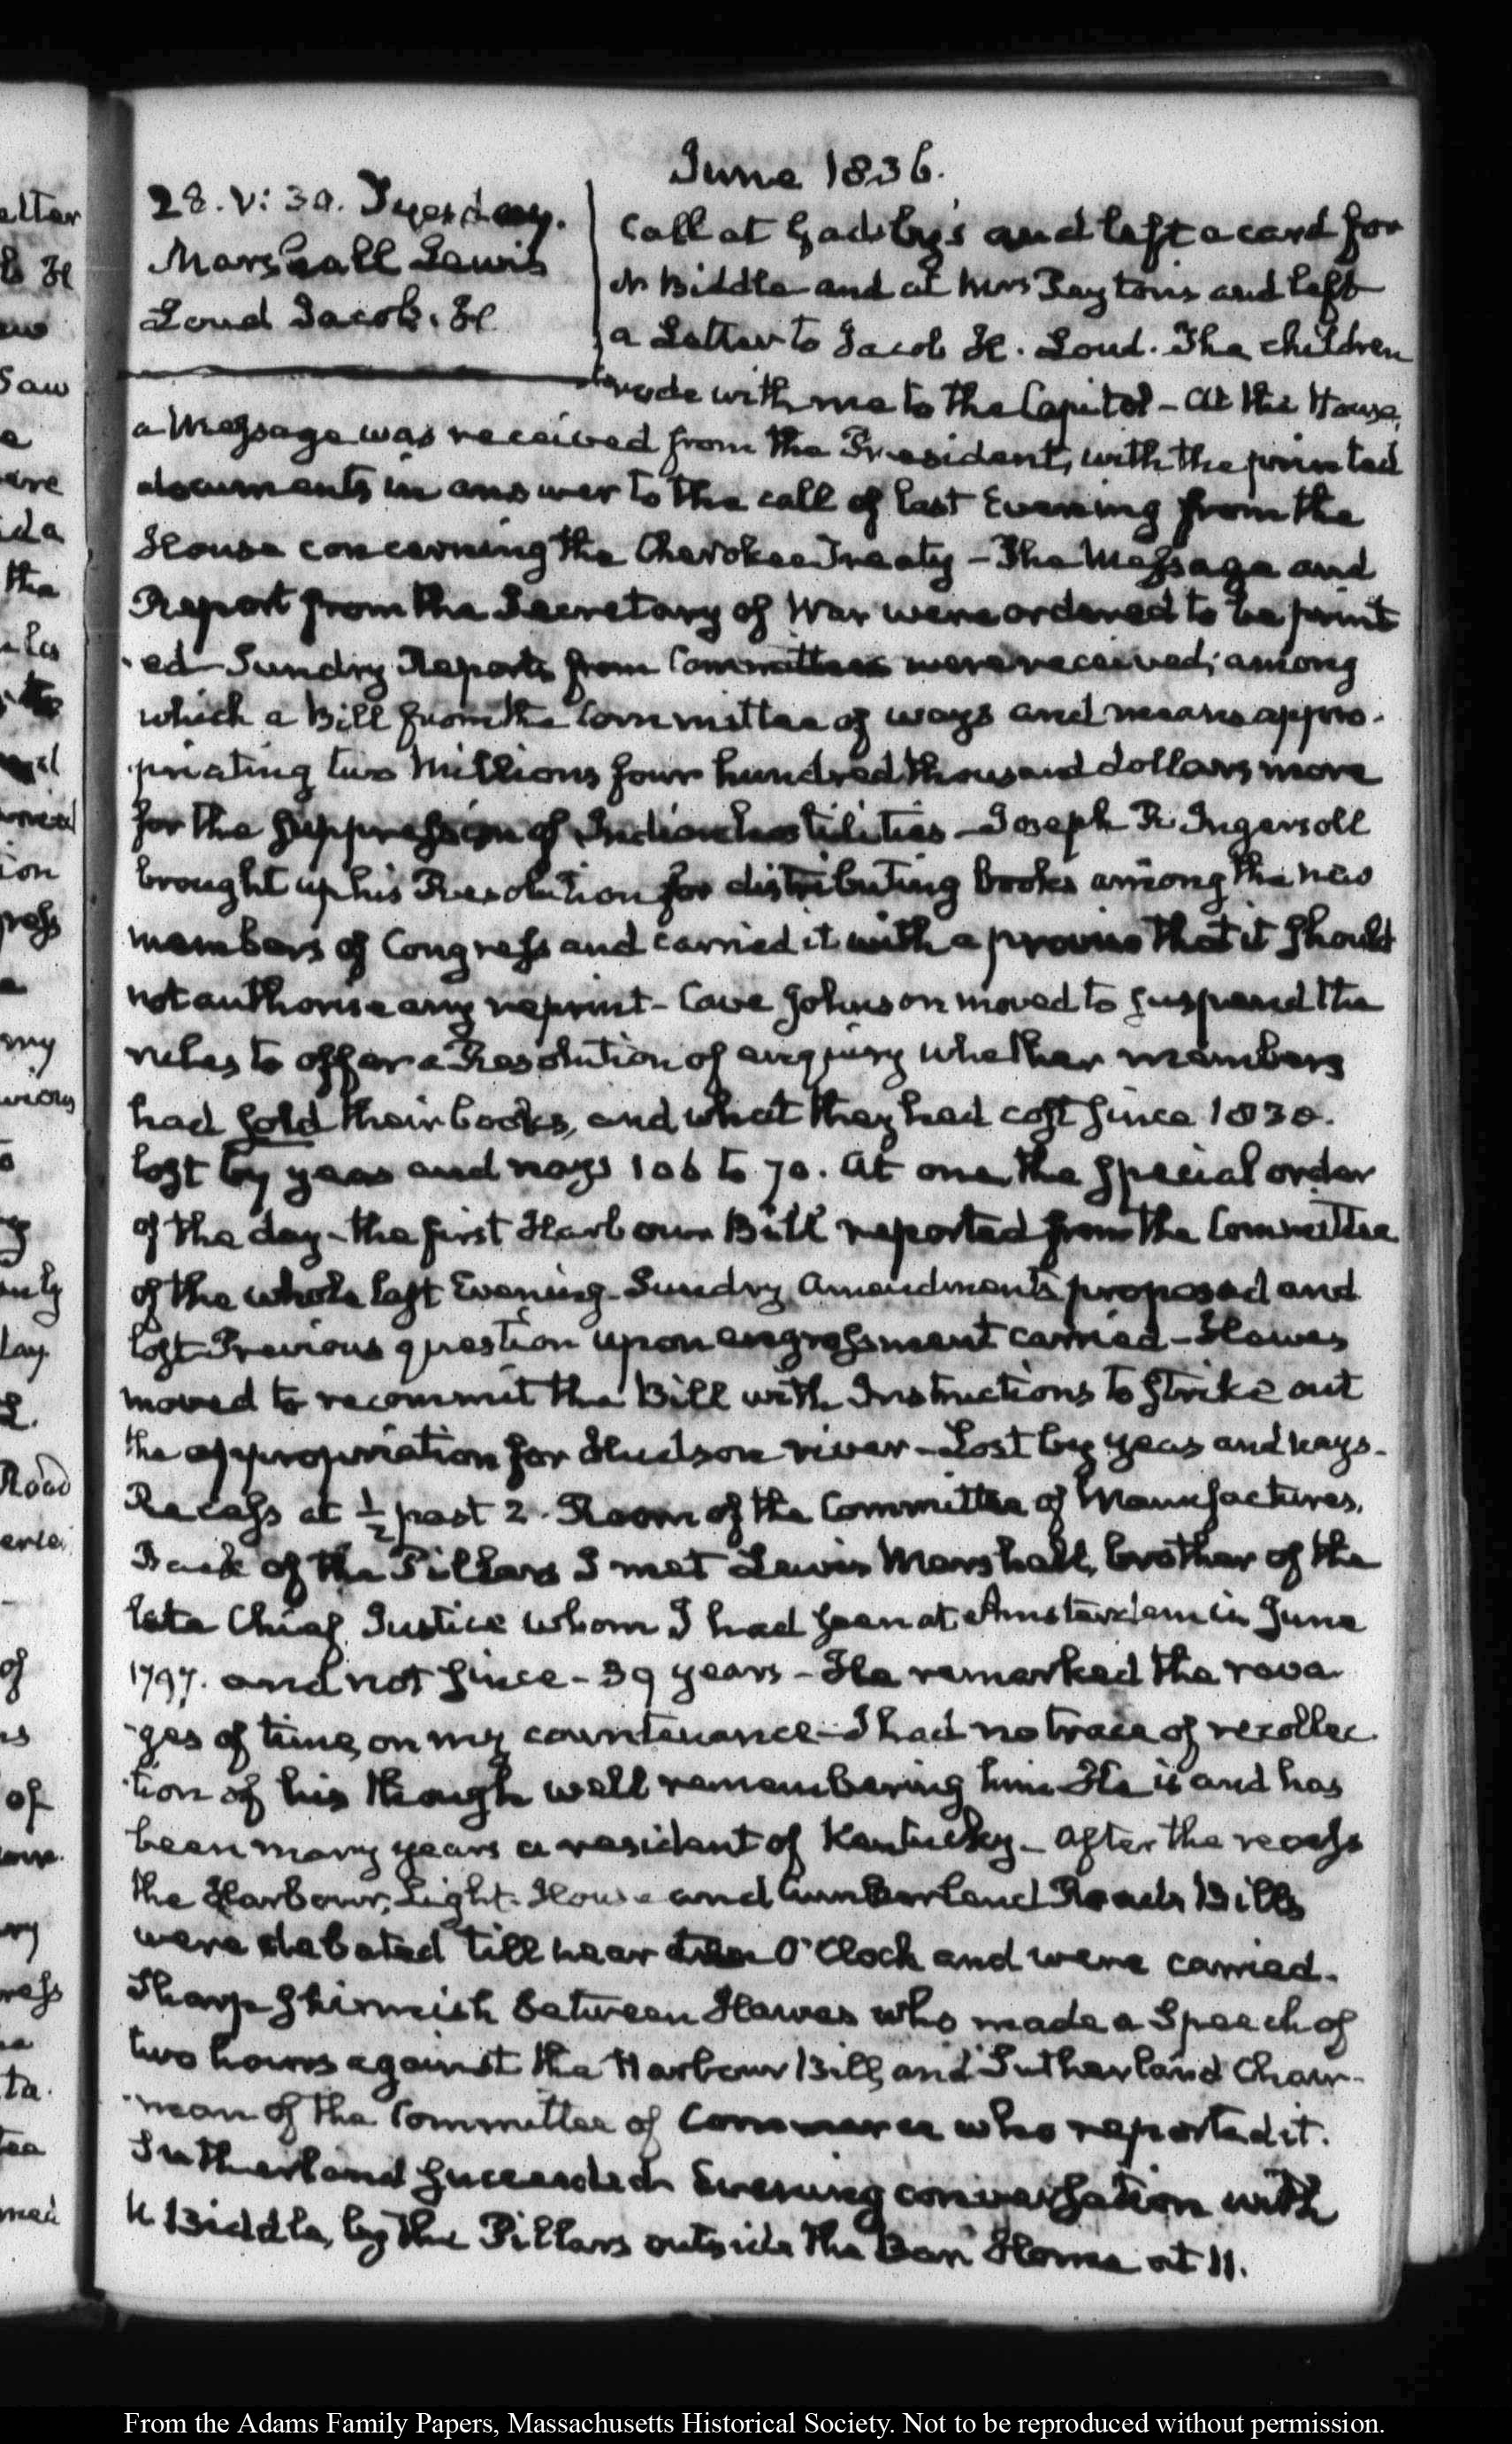 June 1836.
28. V: 30. Tuesday.
Marshall Lewis
Loud Jacob. H
Call at Gadsby's and left a card for
N Biddle and at Mrs Peyton's and left
a Letter to Jacob H. Loud. The children
rode with me to the Capitol – At the House,
a Message was received from the President, with the printed
documents in answer to the call of last Evening from the
House concerning the Cherokee Treaty – The Message and
Report from the Secretary of War were ordered to be print
ed Sundry Reports from Committees were received; among
which a Bill from the Committee of ways and means appro-
priating two Millions four hundred thousand dollars more
for the suppression of Indian hostilities – Joseph R. Ingersoll
brought up his Resolution for distributing books among the new
members of Congress and carried it with a proviso that it should
not authorise any reprint – Cave Johnson moved to suspend the
rules to offer a Resolution of enquiry whether members
had sold their books, and what they had cost since 1830.
lost by yeas and nays 106 to 70. At one, the special order
of the day – the first Harbour Bill reported from the Committee
of the whole last Evening. Sundry Amendments proposed and
lost Previous question upon engrossment carried – Hawes
moved to recommit the Bill with Instructions to strike out
the appropriation for Hudson river – Lost by yeas and nays –
Recess at ½ past 2. Room of the Committee of Manufactures.
Back of the Pillars I met Lewis Marshall, brother of the
late Chief Justice whom I had seen at Amsterdam in June
1797. and not since – 39 years – He remarked the rava
ges of time, on my countenance – I had no trace of recollec
tion of his though well remembering him He is and has
been many years a resident of Kentucky – After the recess
the Harbour, Light-House and Cumberland Road Bills
were debated till near O'Clock and were carried.
Sharp skirmish between Hawes who made a Speech of
two hours against the Harbour Bill, and Sutherland Chair-
man of the Committee of Commerce who reported it.
Sutherland succeeded. Evening conversation with
N Biddle, by the Pillars outside the Bar Home at 11.
From the Adams Family Papers, Massachusetts Historical Society. Not to be reproduced without permission.